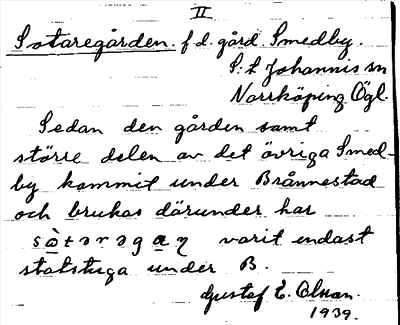 II
Sotaregården. f.d. gård. Smedby.
S:t Johannis sn
Norrköping Ögl.
Sedan den gården samt
större delen av det övriga Smed-
by kommit under Brånnestad
och brukas därunder har
sò̱tərəga̱ɳ varit endast
statstuga under B.
Gustaf E. Olson.
1939.